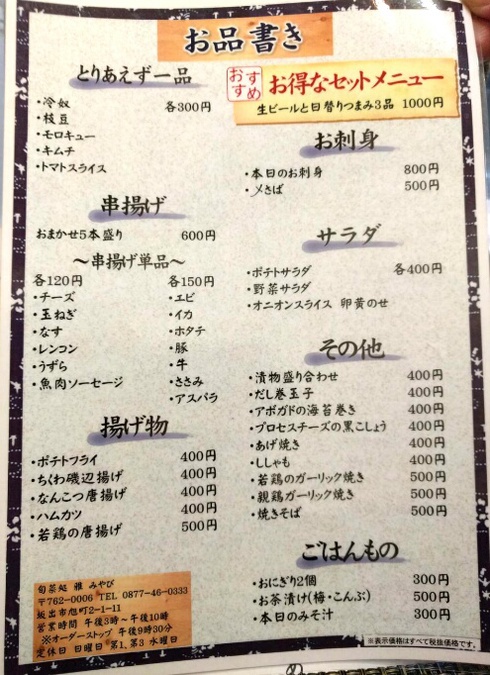 お品書き
とりあえず一品
・冷奴 各300円
・枝豆
・モロキュー
・キムチ
・トマトスライス
串揚げ
おまかせ5本盛り 600円
～串揚げ単品～
各120円 各150円
・チーズ ・エビ
・玉ねぎ ・イカ
・なす ・ホタテ
・レンコン ・豚
・うずら ・牛
・魚肉ソーセージ ・ささみ
・アスパラ
揚げ物
・ポテトフライ 400円
・ちくわ磯辺揚げ 400円
・なんこつ唐揚げ 400円
・ハムカツ 400円
・若鶏の唐揚げ 500円
旬菜処 雅 みやび
〒762-0006 TEL 0877-46-0333
坂出市旭町2-1-11
営業時間 午後3時～午後10時
※オーダーストップ 午後9時30分
定休日 日曜日 第1、第3 水曜日
おすすめ お得なセットメニュー
生ビールと日替りつまみ3品 1000円
お刺身
・本日のお刺身 800円
・〆さば 500円
サラダ
・ポテトサラダ 各400円
・野菜サラダ
・オニオンスライス 卵黄のせ
その他
・漬物盛り合わせ 400円
・だし巻玉子 400円
・アボガドの海苔巻き 400円
・プロセスチーズの黒こしょう 400円
・あげ焼き 400円
・ししゃも 400円
・若鶏のガーリック焼き 500円
・親鶏ガーリック焼き 500円
・焼きそば 500円
ごはんもの
・おにぎり2個 300円
・お茶漬け(梅・こんぶ) 500円
・本日のみそ汁 300円
※表示価格はすべて税抜価格です。